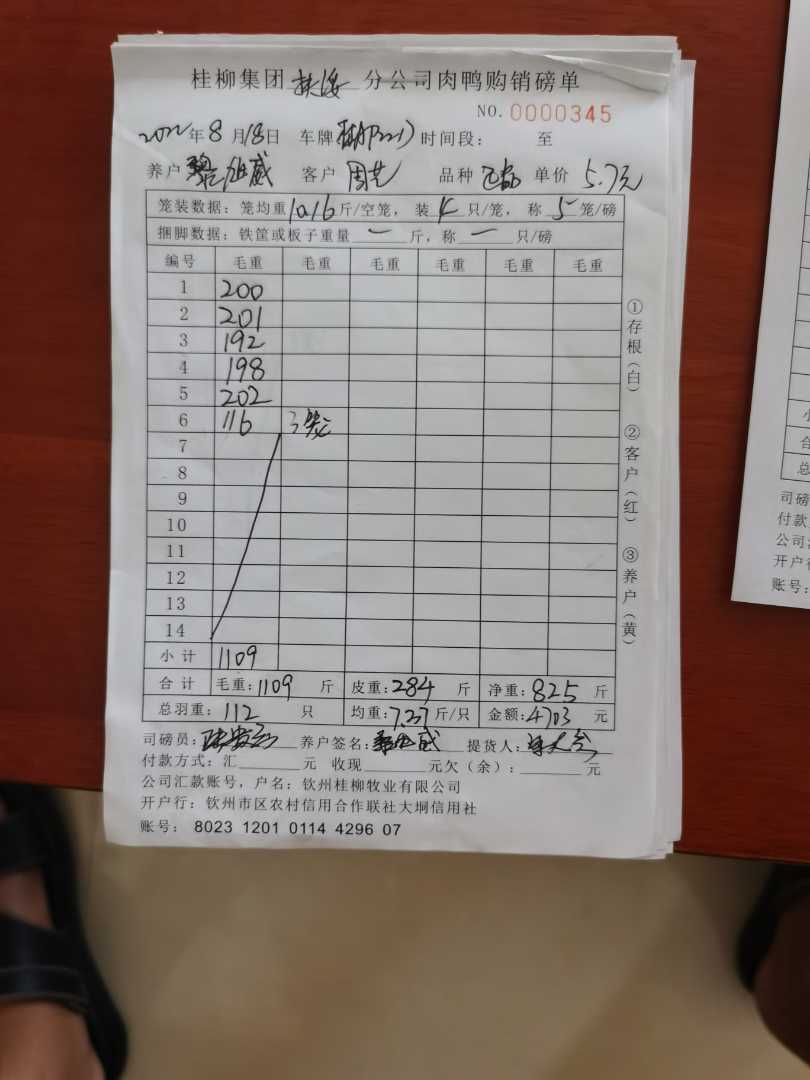 桂柳集团 扶绥 分公司肉鸭购销磅单
NO. 0000345
2022年8月18日 车牌 时间段： 至
养户 客户 周芝 品种 单价 5.7元
笼装数据：笼均重10.16斤/空笼，装4只/笼，称5笼/磅
捆脚数据：铁筐或板子重量一斤，称一只/磅
编号 毛重 毛重 毛重 毛重 毛重 毛重
1 200
2 201
3 192
4 198
5 202
6 116 3笼
7
8
9
10
11
12
13
14
小计 1109
合计 毛重：1109 斤 皮重：284 斤 净重：825 斤
总羽重：112 只 均重：7.37斤/只 金额：4703 元
司磅员： 养户签名： 提货人：
付款方式：汇 元 收现 元欠（余）： 元
公司汇款账号，户名：钦州桂柳牧业有限公司
开户行：钦州市区农村信用合作联社大垌信用社
账号： 8023 1201 0114 4296 07
①存根（白）
②客户（红）
③养户（黄）
小
合
总
司磅
付款
公司
开户行
账号：